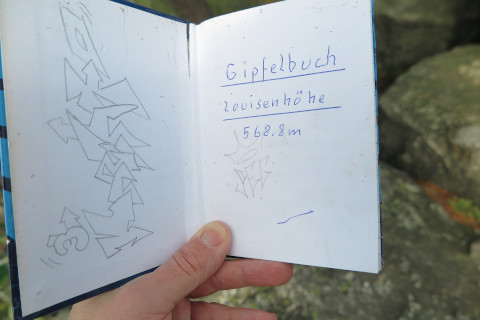 Gipfelbuch
Louisenhöhe
568.8m